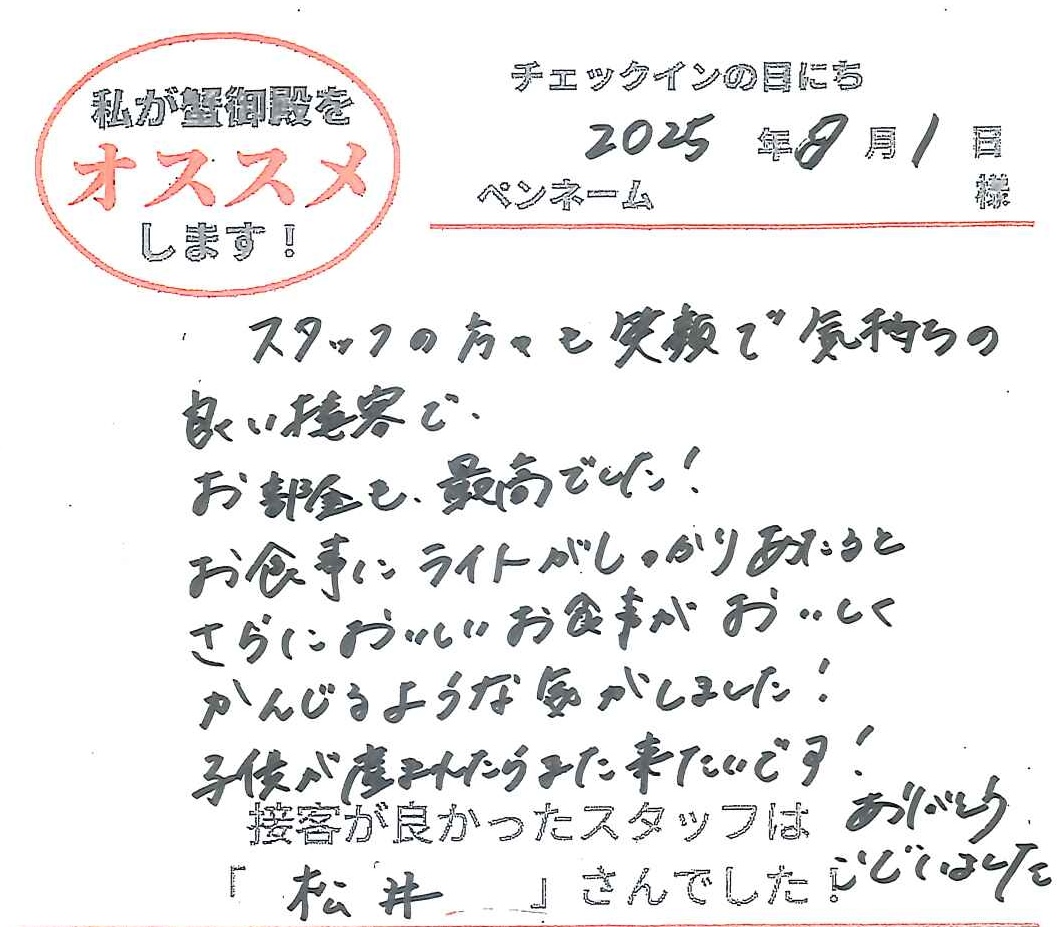 私が蟹御殿を
オススメ
します！
チェックインの日にち
2025年8月1日
ペンネーム 様
スタッフの方々も笑顔で気持ちの
良い接客で、
お部屋も、最高でした！
お食事にライトがしっかりあたると
さらにおいしいお食事がおいしく
かんじるような気がしました！
子供が産まれたらまた来たいです！
ありがとう
ございました
接客が良かったスタッフは
「松井」さんでした！